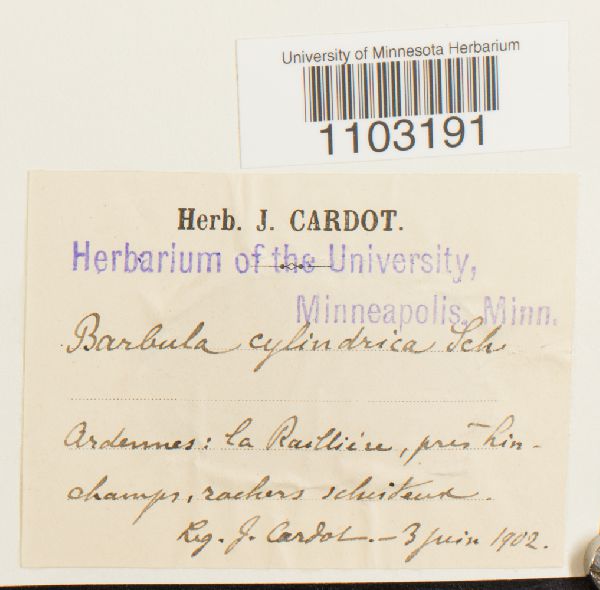 University of Minnesota Herbarium
1103191
Herb. J. CARDOT.
Herbarium of the University,
Minneapolis, Minn.
Barbula cylindrica Sch
Ardennes: la Raillière, près Lin-
champs, rochers schisteux.
Leg. J. Cardot. – 3 juin 1902.